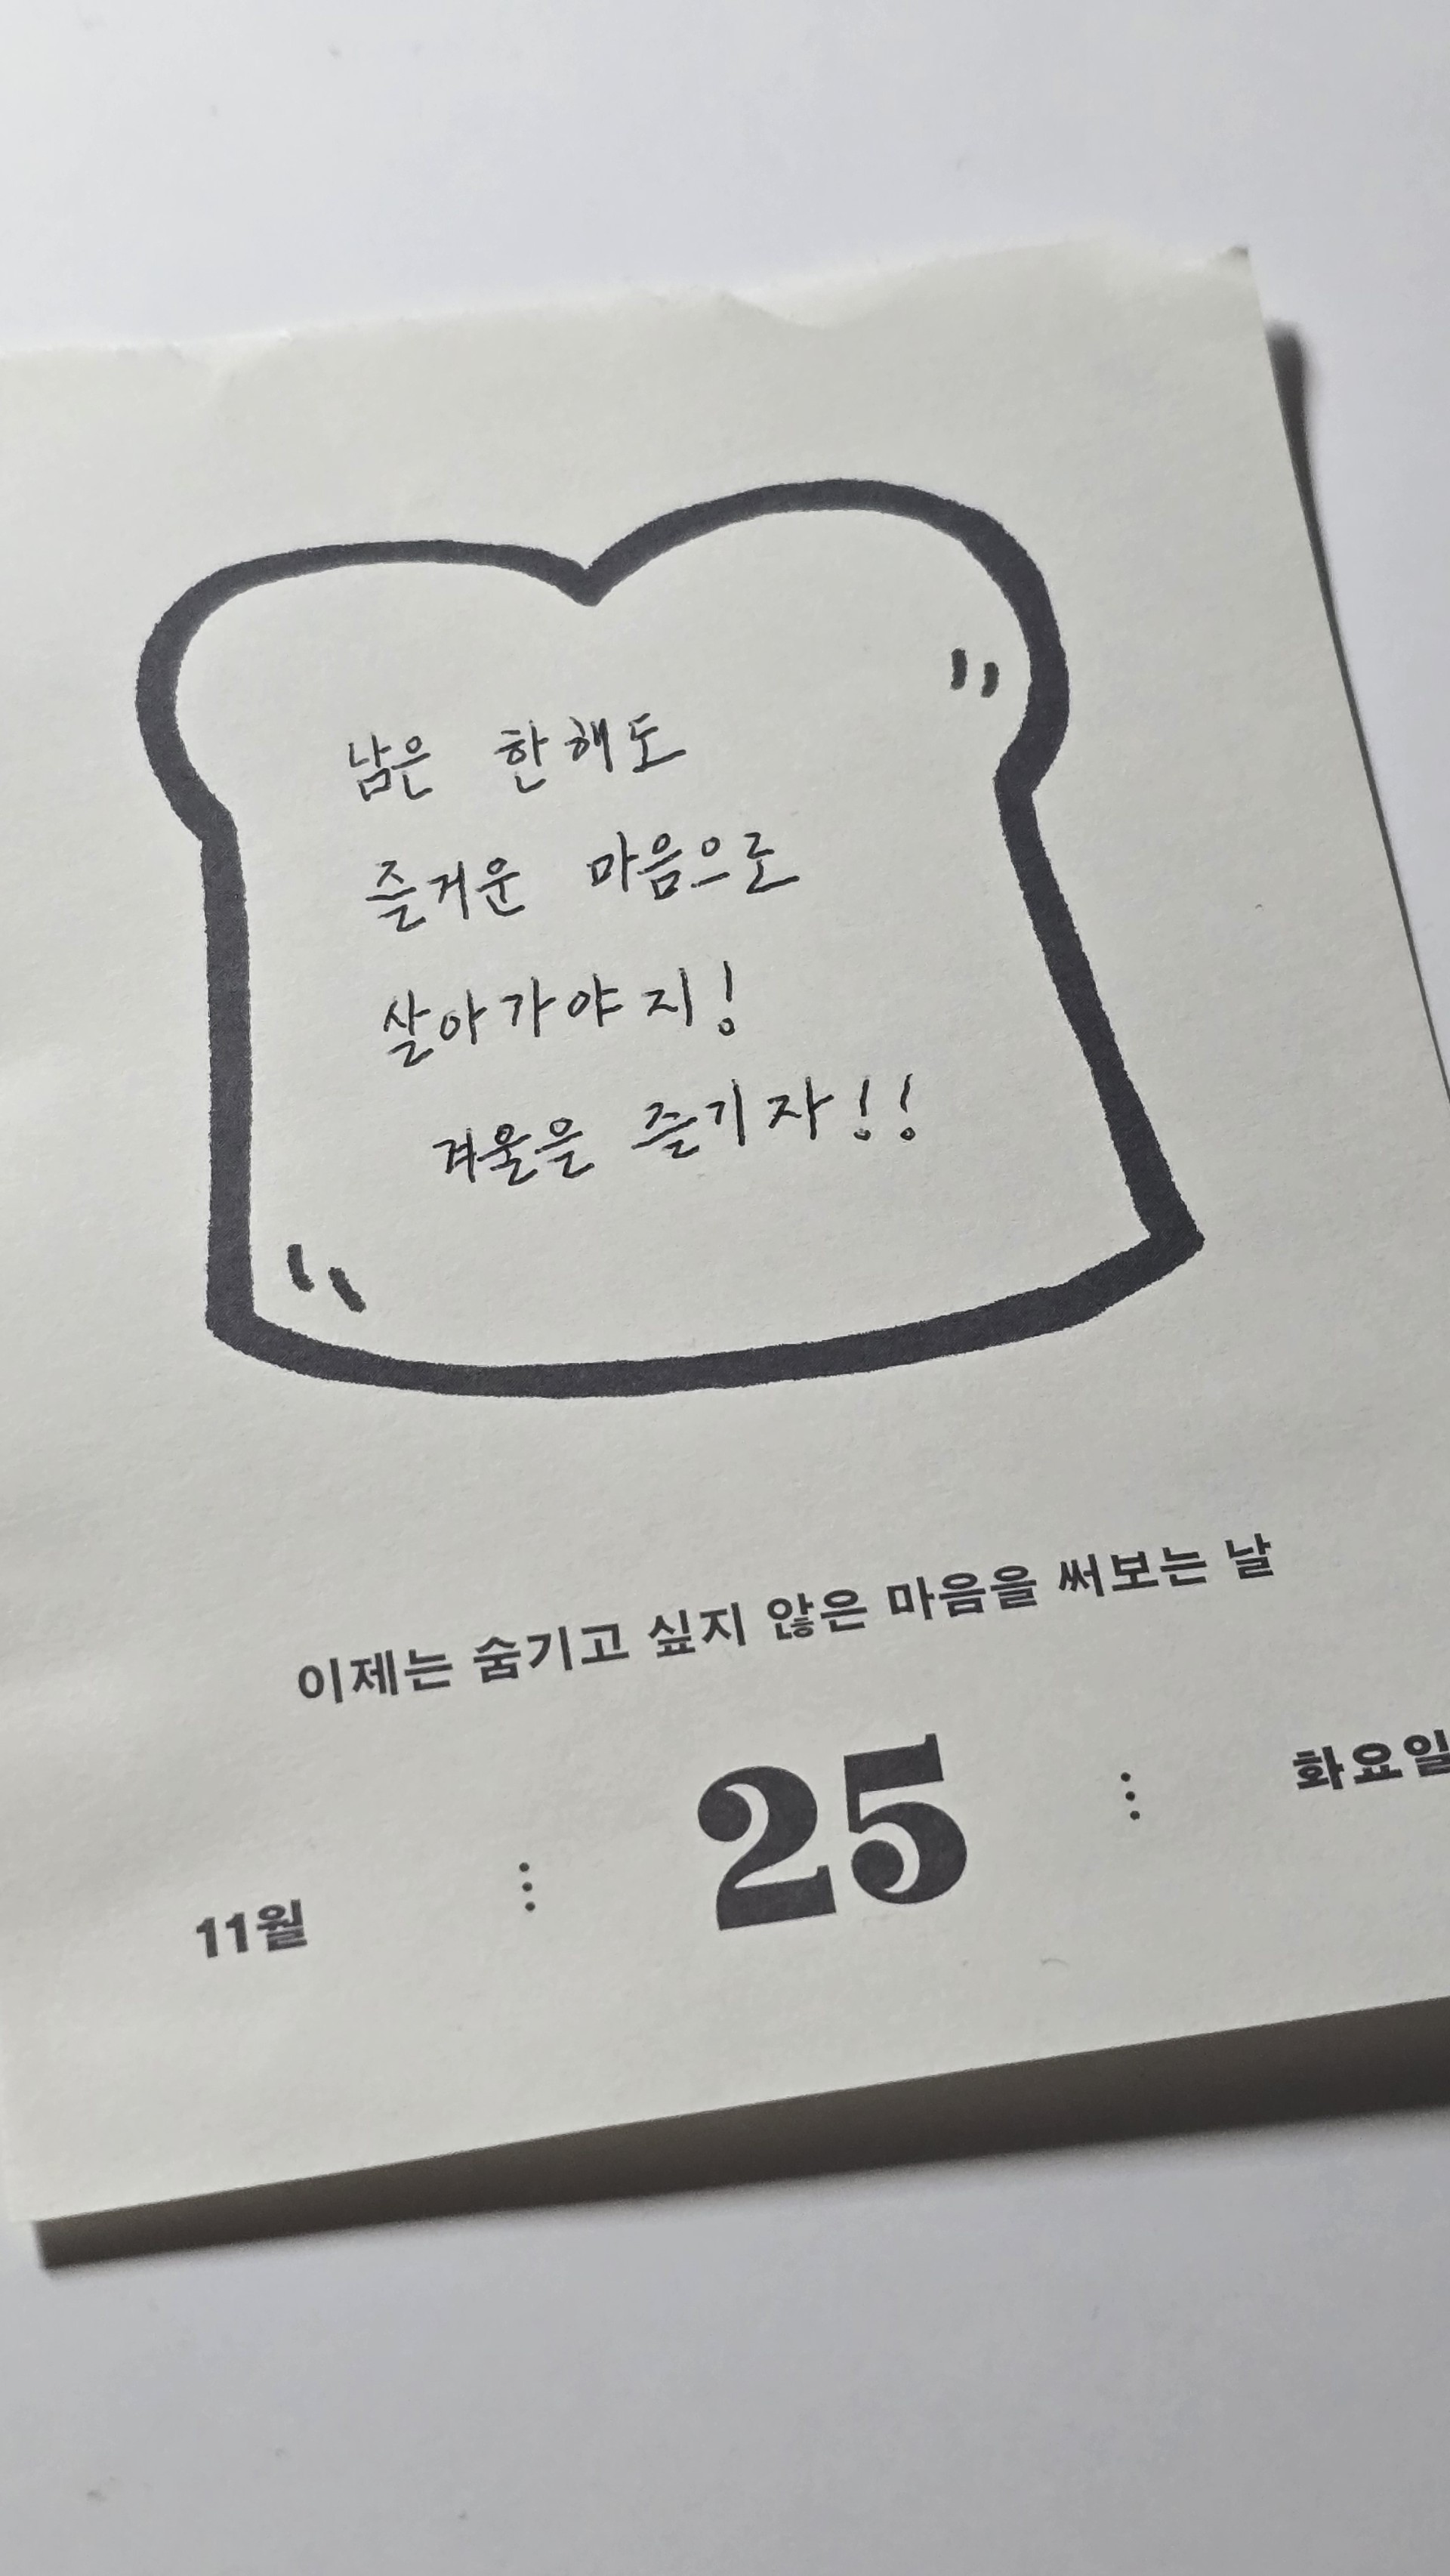 남은 한해도
즐거운 마음으로
살아가야지!
겨울을 즐기자!!
이제는 숨기고 싶지 않은 마음을 써보는 날
11월 ⋮ 25 ⋮ 화요일